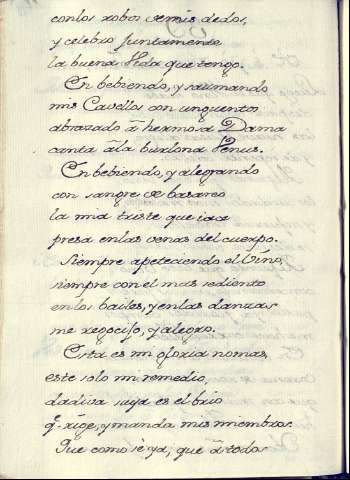 con los robos de mis dedos,
y celebro juntamente
la buena Vida que tengo.
En bebiendo, y saumando
mis Cavellos con unguentos
abrazado â hermosa Dama
canta â la burlona Venus.
En bebiendo, y alegrando
con sangre de basareo
la mia triste que iace
presa en las venas del cuerpo.
Siempre apeteciendo el Vino,
siempre con el mas sediento
en los bailes, y en las danzas
me regocijo, y alegro.
Esta es mi gloria no mas,
este solo mi remedio,
dadiva suya es el brio
q.e rige, y manda mis miembros.
que como se ya, que â todos